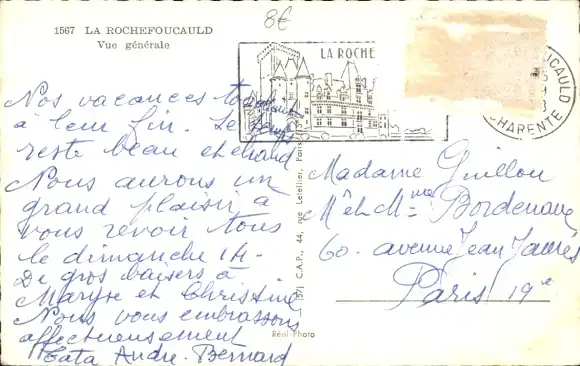 8€
1567 LA ROCHEFOUCAULD
Vue générale
LA ROCHE
UCAULD
CHARENTE
Nos vacances touchent
à leur fin. Le temps
reste beau et chaud
Nous aurons un
grand plaisir à
vous revoir tous
le dimanche 14-
De gros baisers à
Maryse et Christine
Nous vous embrassons
affectueusement
Tata André. Bernard
Madame Guillou
M et Mme Bordenave
60. avenue Jean Jaurès
Paris 19e
(57) C.A.P., 44, rue Letellier, Paris
Réal-Photo